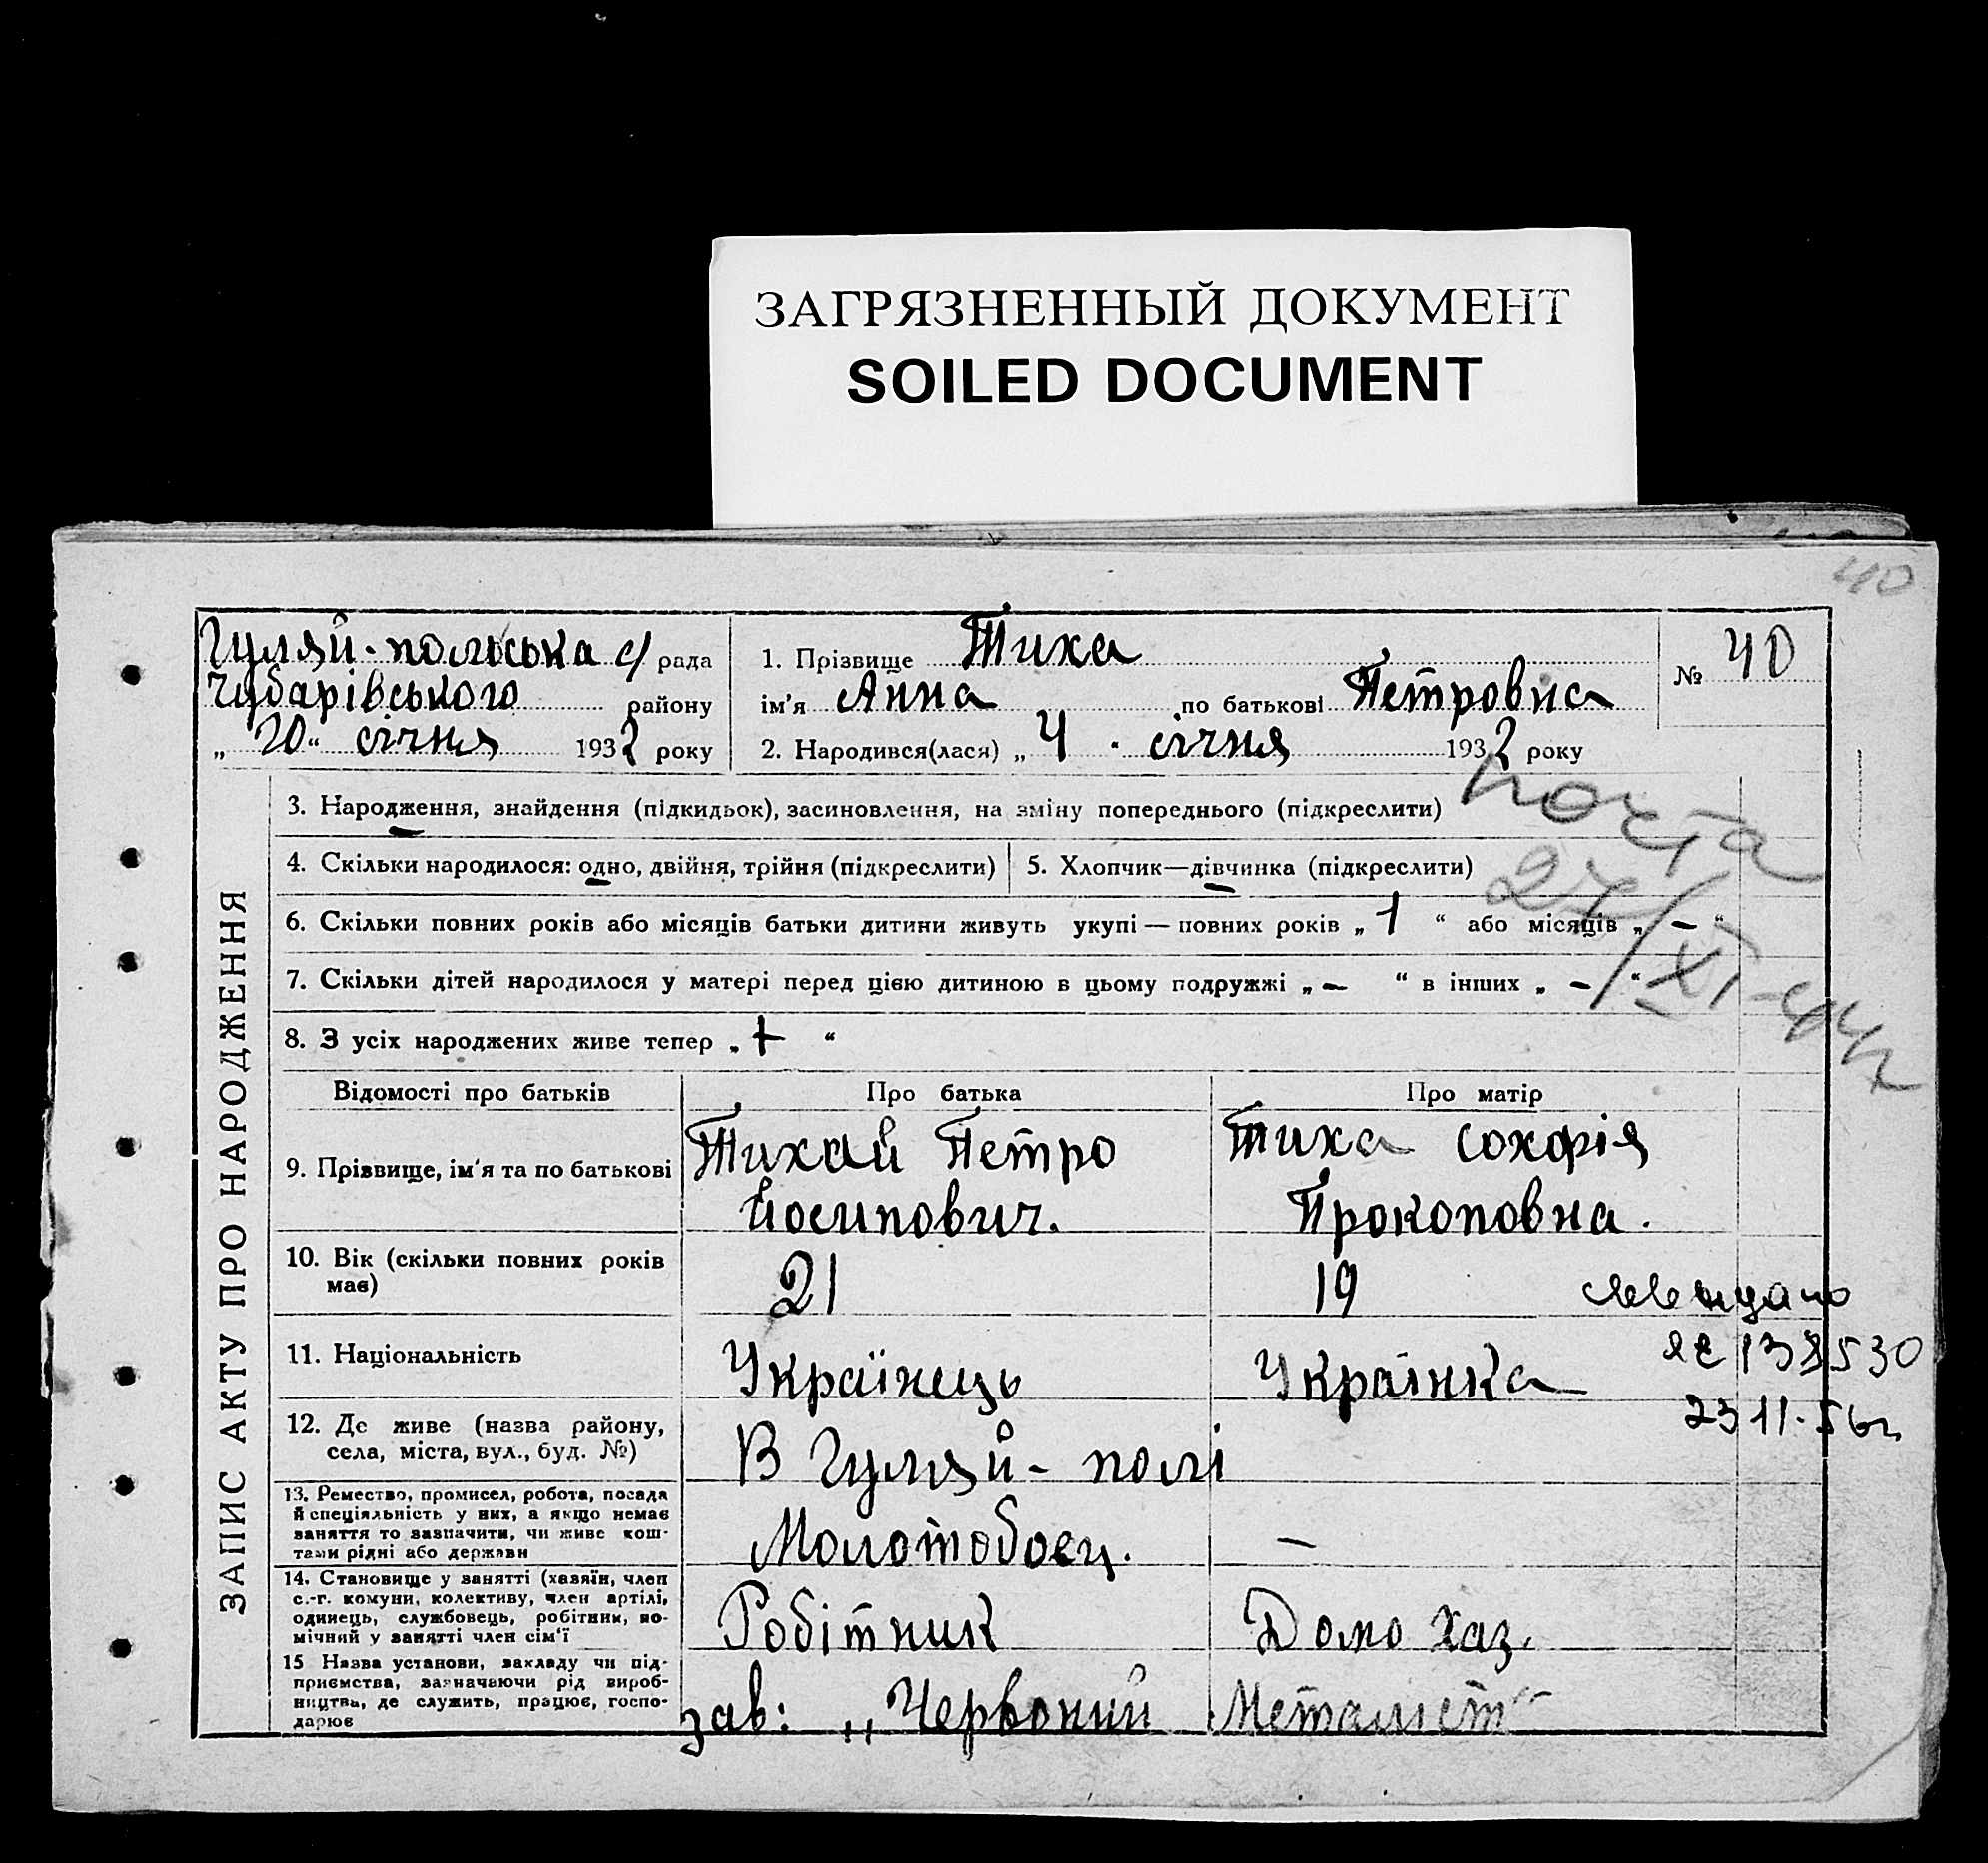 ЗАГРЯЗНЕННЫЙ ДОКУМЕНТ
SOILED DOCUMENT
40
Гуляй-польська с/ рада
Чубарівського району
„20“ січня 1932 року
1. Прізвище Тиха
ім'я Анна по батькові Петровна
2. Народився(лася) „4“ січня 1932 року
№ 40
ЗАПИС АКТУ ПРО НАРОДЖЕННЯ
3. Народження, знайдення (підкидьок), засиновлення, на зміну попереднього (підкреслити)
почта
4. Скільки народилося: одно, двійня, трійня (підкреслити)
5. Хлопчик—дівчинка (підкреслити)
6. Скільки повних років або місяців батьки дитини живуть укупі — повних років „1“ або місяців „–“
7. Скільки дітей народилося у матері перед цією дитиною в цьому подружжі „–“ в інших „–“
8. З усіх народжених живе тепер „ “
Відомості про батьків
Про батька
Про матір
9. Прізвище, ім'я та по батькові
Тихай Петро
Йосипович.
Тиха Сохфія
Прокоповна.
10. Вік (скільки повних років
має)
21
19
11. Національність
Українець
Українка
23 11. 56г
12. Де живе (назва району,
села, міста, вул., буд. №)
В Гуляй-полі
13. Ремество, промисел, робота, посада
й спеціяльність у них, а якщо немає
заняття то зазначити, чи живе кош-
тами рідні або держави
Молотобоец.
–
14. Становище у занятті (хазяїн, член
с.-г. комуни, колективу, член артілі,
одинець, службовець, робітник, по-
мічний у занятті член сім'ї
Робітник
Домо хаз.
15 Назва установи, закладу чи під-
приємства, зазначаючи рід вироб-
ництва, де служить, працює, госпо-
дарює
зав: „Червоний Металист“